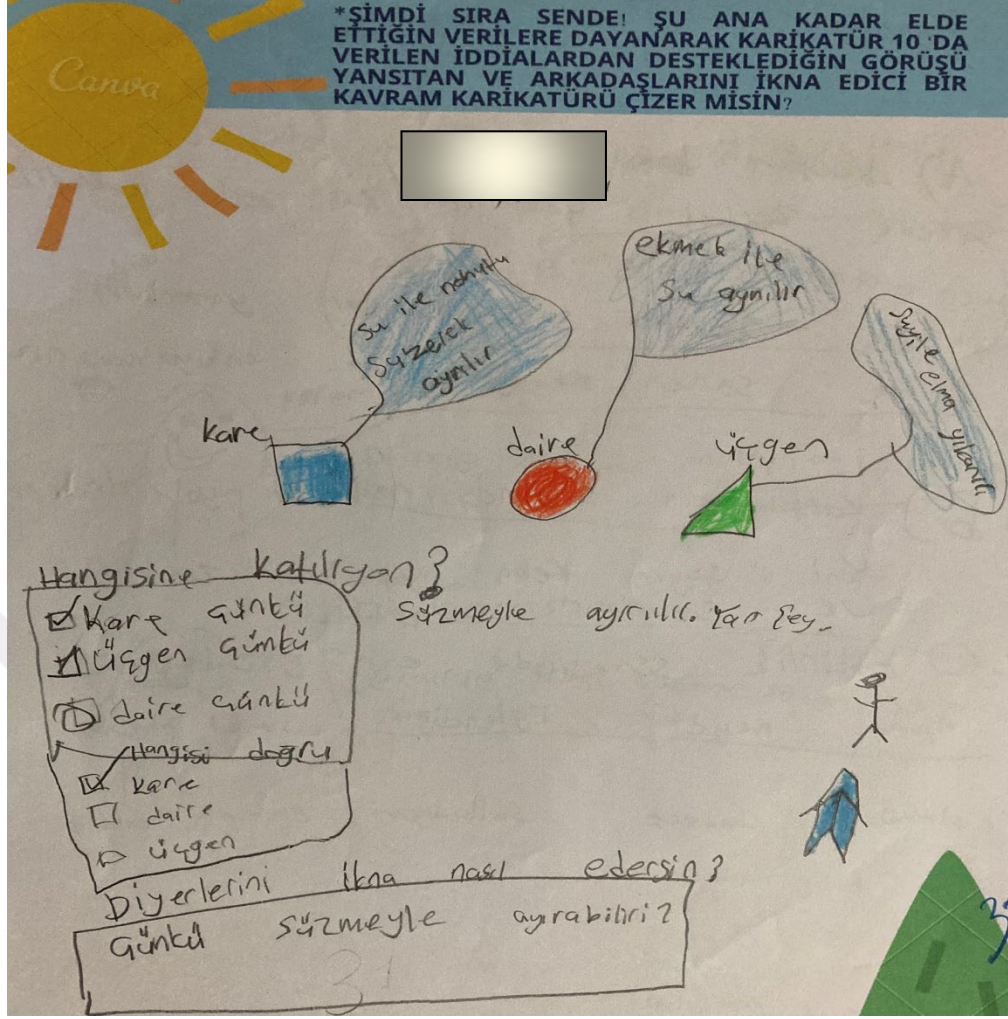 Canva
*ŞİMDİ SIRA SENDE! ŞU ANA KADAR ELDE
ETTİĞİN VERİLERE DAYANARAK KARİKATÜR 10 'DA
VERİLEN İDDİALARDAN DESTEKLEDİĞİN GÖRÜŞÜ
YANSITAN VE ARKADAŞLARINI İKNA EDİCİ BİR
KAVRAM KARİKATÜRÜ ÇİZER MİSİN?
Su ile nohutu
Süzerek
ayrılır
ekmek ile
Su ayrılır
Suyile
elma
yıkanılı
kare
daire
üçgen
Hangisine katılıyon?
Kare Günkü
Üçgen Günkü
daire Günkü
Süzmeyle ayırılır.
Hangisi doğru
kare
daire
üçgen
Diyerlerini ikna nasıl edersin?
Günkü süzmeyle ayırabiliri?
31